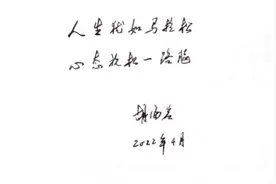 人生犹如马拉松
心态放松一路
胡
2022年4月